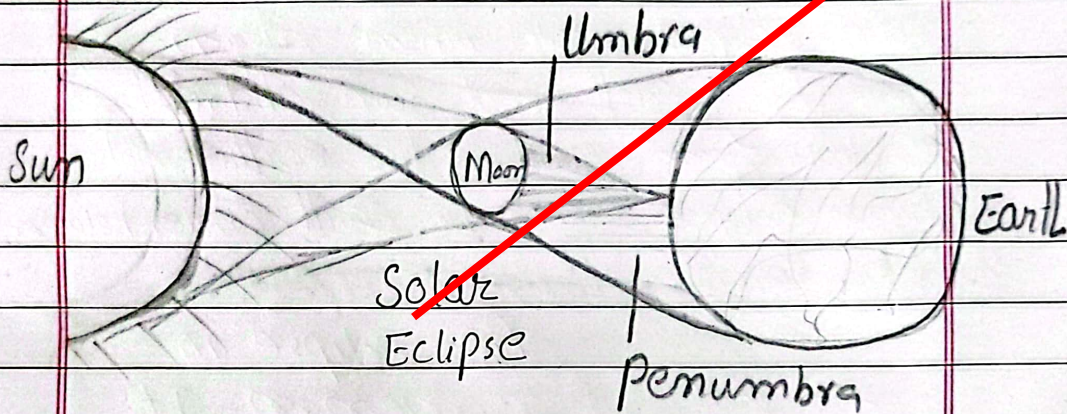 Umbra
Sun
Moon
Earth
Solar
Eclipse
Penumbra